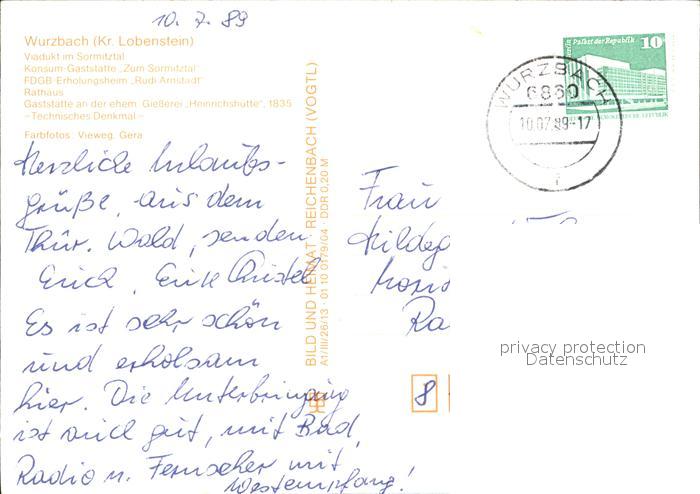 10. 7. 89
Wurzbach (Kr. Lobenstein)
Viadukt im Sormitztal
Konsum-Gaststätte „Zum Sormitztal"
FDGB-Erholungsheim „Rudi Arnstadt"
Rathaus
Gaststätte an der ehem. Gießerei „Heinrichshütte", 1835
–Technisches Denkmal–
Farbfotos: Vieweg, Gera
Herzliche Urlaubs-
grüße, aus dem
Thür. Wald, senden
Erich, Christel
Es ist sehr schön
und erholsam
hier. Die Unterbringung
ist auch gut, mit Bad,
Radio u. Fernseher mit
Westempfang!
BILD UND HEIMAT · REICHENBACH (VOGTL)
A1/III/26/13 · 01 10 0179/04 · DDR 0,20 M
Berlin Palast der Republik 10
DEUTSCHE DEMOKRATISCHE REPUBLIK
WURZBACH
6860
10.07.89-17
Frau
Hildeg
Ra
8
privacy protection
Datenschutz